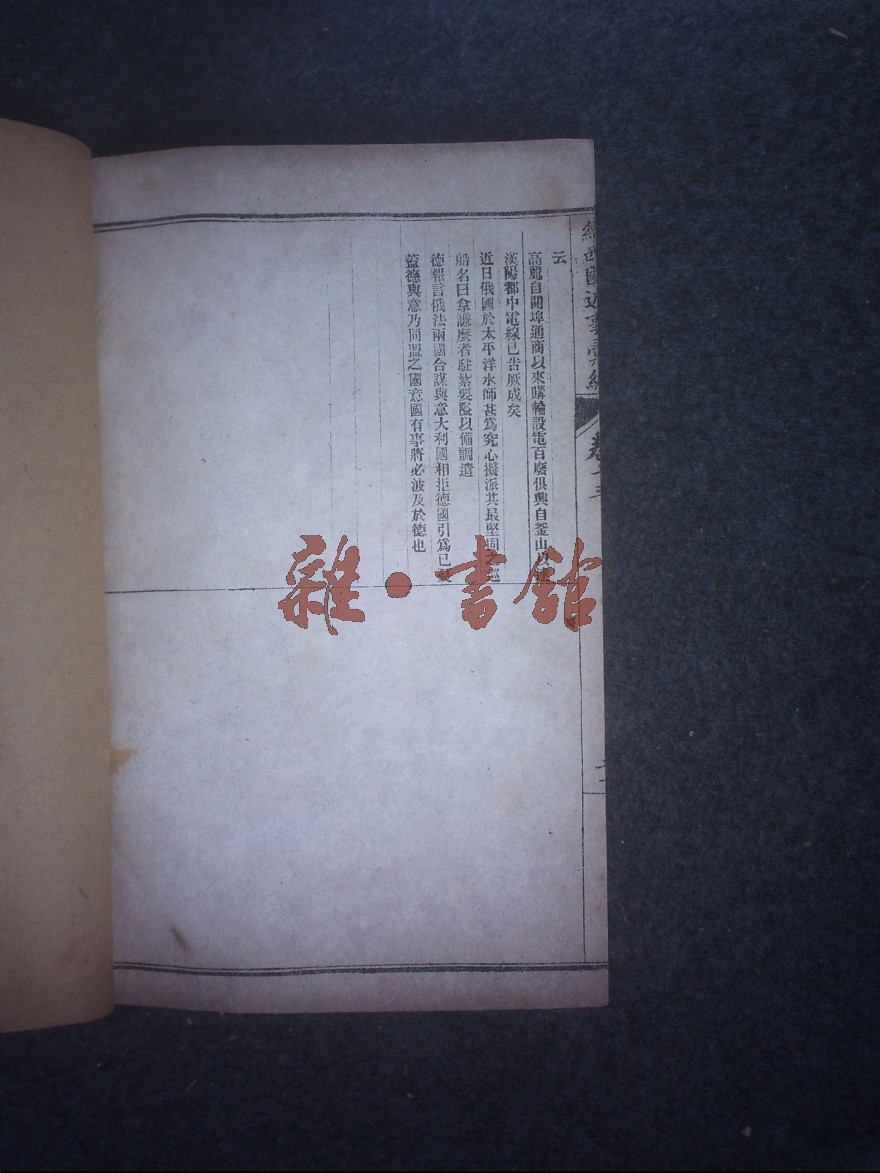 云
高麗自開埠通商以來購輪設電百廢俱興自釜山
漢陽都中電線已告厥成矣
近日俄國於太平洋水師甚爲究心擬派其最堅固之巡
船名曰拿謙麼者駐紮要隘以備調遣
德報言俄法兩國合謀與意大利國相拒德國引爲已
蓋德與意乃同盟之國意國有事將必波及於德也
西國近事彙編
雜·書館